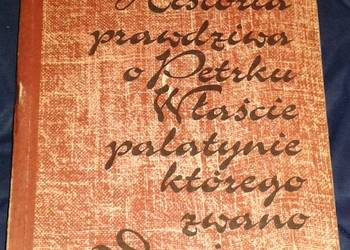 Historia
prawdziwa
o Petrku
Właście
palatynie
którego
zwano